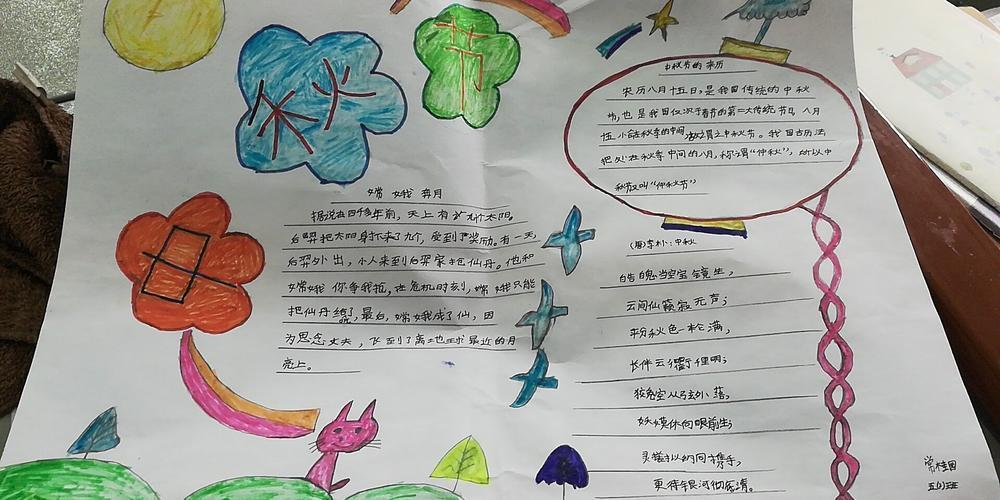 中
秋
节
嫦娥奔月
据说在四千年前，天上有九个太阳。
后羿把太阳射下来了九个，受到了奖励。有一天，
后羿外出，小人来到后羿家抢仙丹。他和
嫦娥你争我抢，在危机时刻，嫦娥只能
把仙丹给吃了，最后，嫦娥成了仙，因
为思念丈夫，飞到了离地球最近的月
亮上。
中秋节的来历
农历八月十五日，是我国传统的中秋
节，也是我国仅次于春节的第二大传统节日。八月
十五恰在秋季的中间，故谓之中秋节。我国古历法
把处在秋季中间的八月，称谓"仲秋"，所以中
秋节又叫"仲秋节"
(唐)李朴：中秋
皓魄当空宝镜生，
云间仙籁寂无声；
平分秋色一轮满，
长伴云衢千里明；
狡兔空从弦外落，
妖蟆休向眼前生；
灵槎拟约同携手，
更待银河彻底清。
常桂园
五(1)班